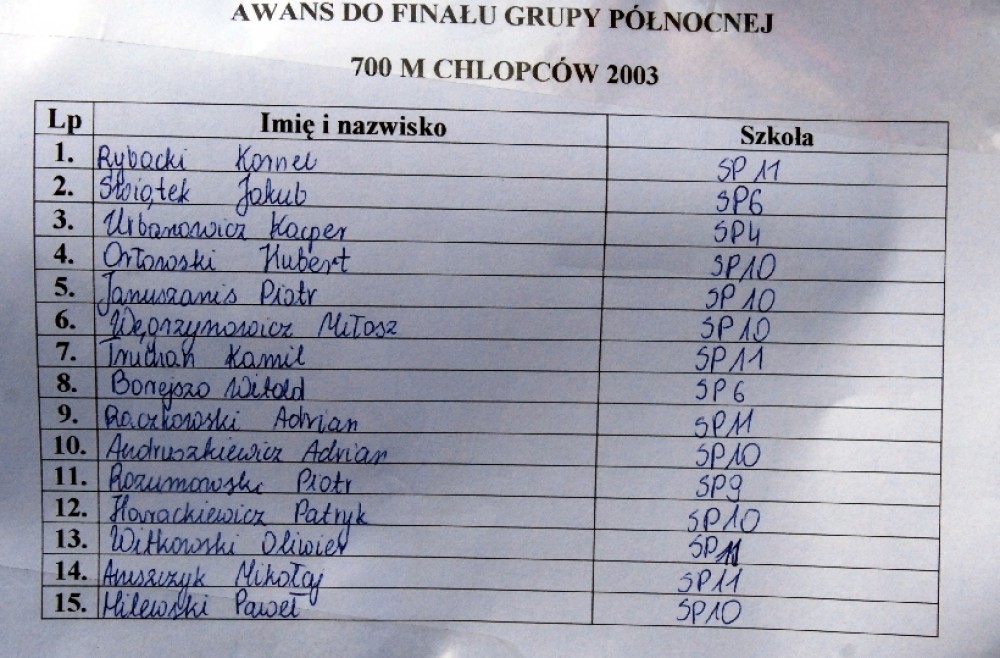 AWANS DO FINAŁU GRUPY PÓŁNOCNEJ
700 M CHLOPCÓW 2003
Lp Imię i nazwisko Szkoła
1. Rybacki Kornel SP 11
2. Słoiątek Jakub SP6
3. Urbanowicz Kacper SP4
4. Orłowski Hubert SP10
5. Januszanis Piotr SP 10
6. Węgrzynowicz Miłosz SP10
7. Truchan Kamil SP11
8. Borejszo Witold SP 6
9. Raczkowski Adrian SP11
10. Andruszkiewicz Adrian SP10
11. Rozumowski Piotr SP9
12. Harackiewicz Patryk SP10
13. Witkowski Oliwier SP11
14. Anuszczyk Mikołaj SP11
15. Milewski Paweł SP10